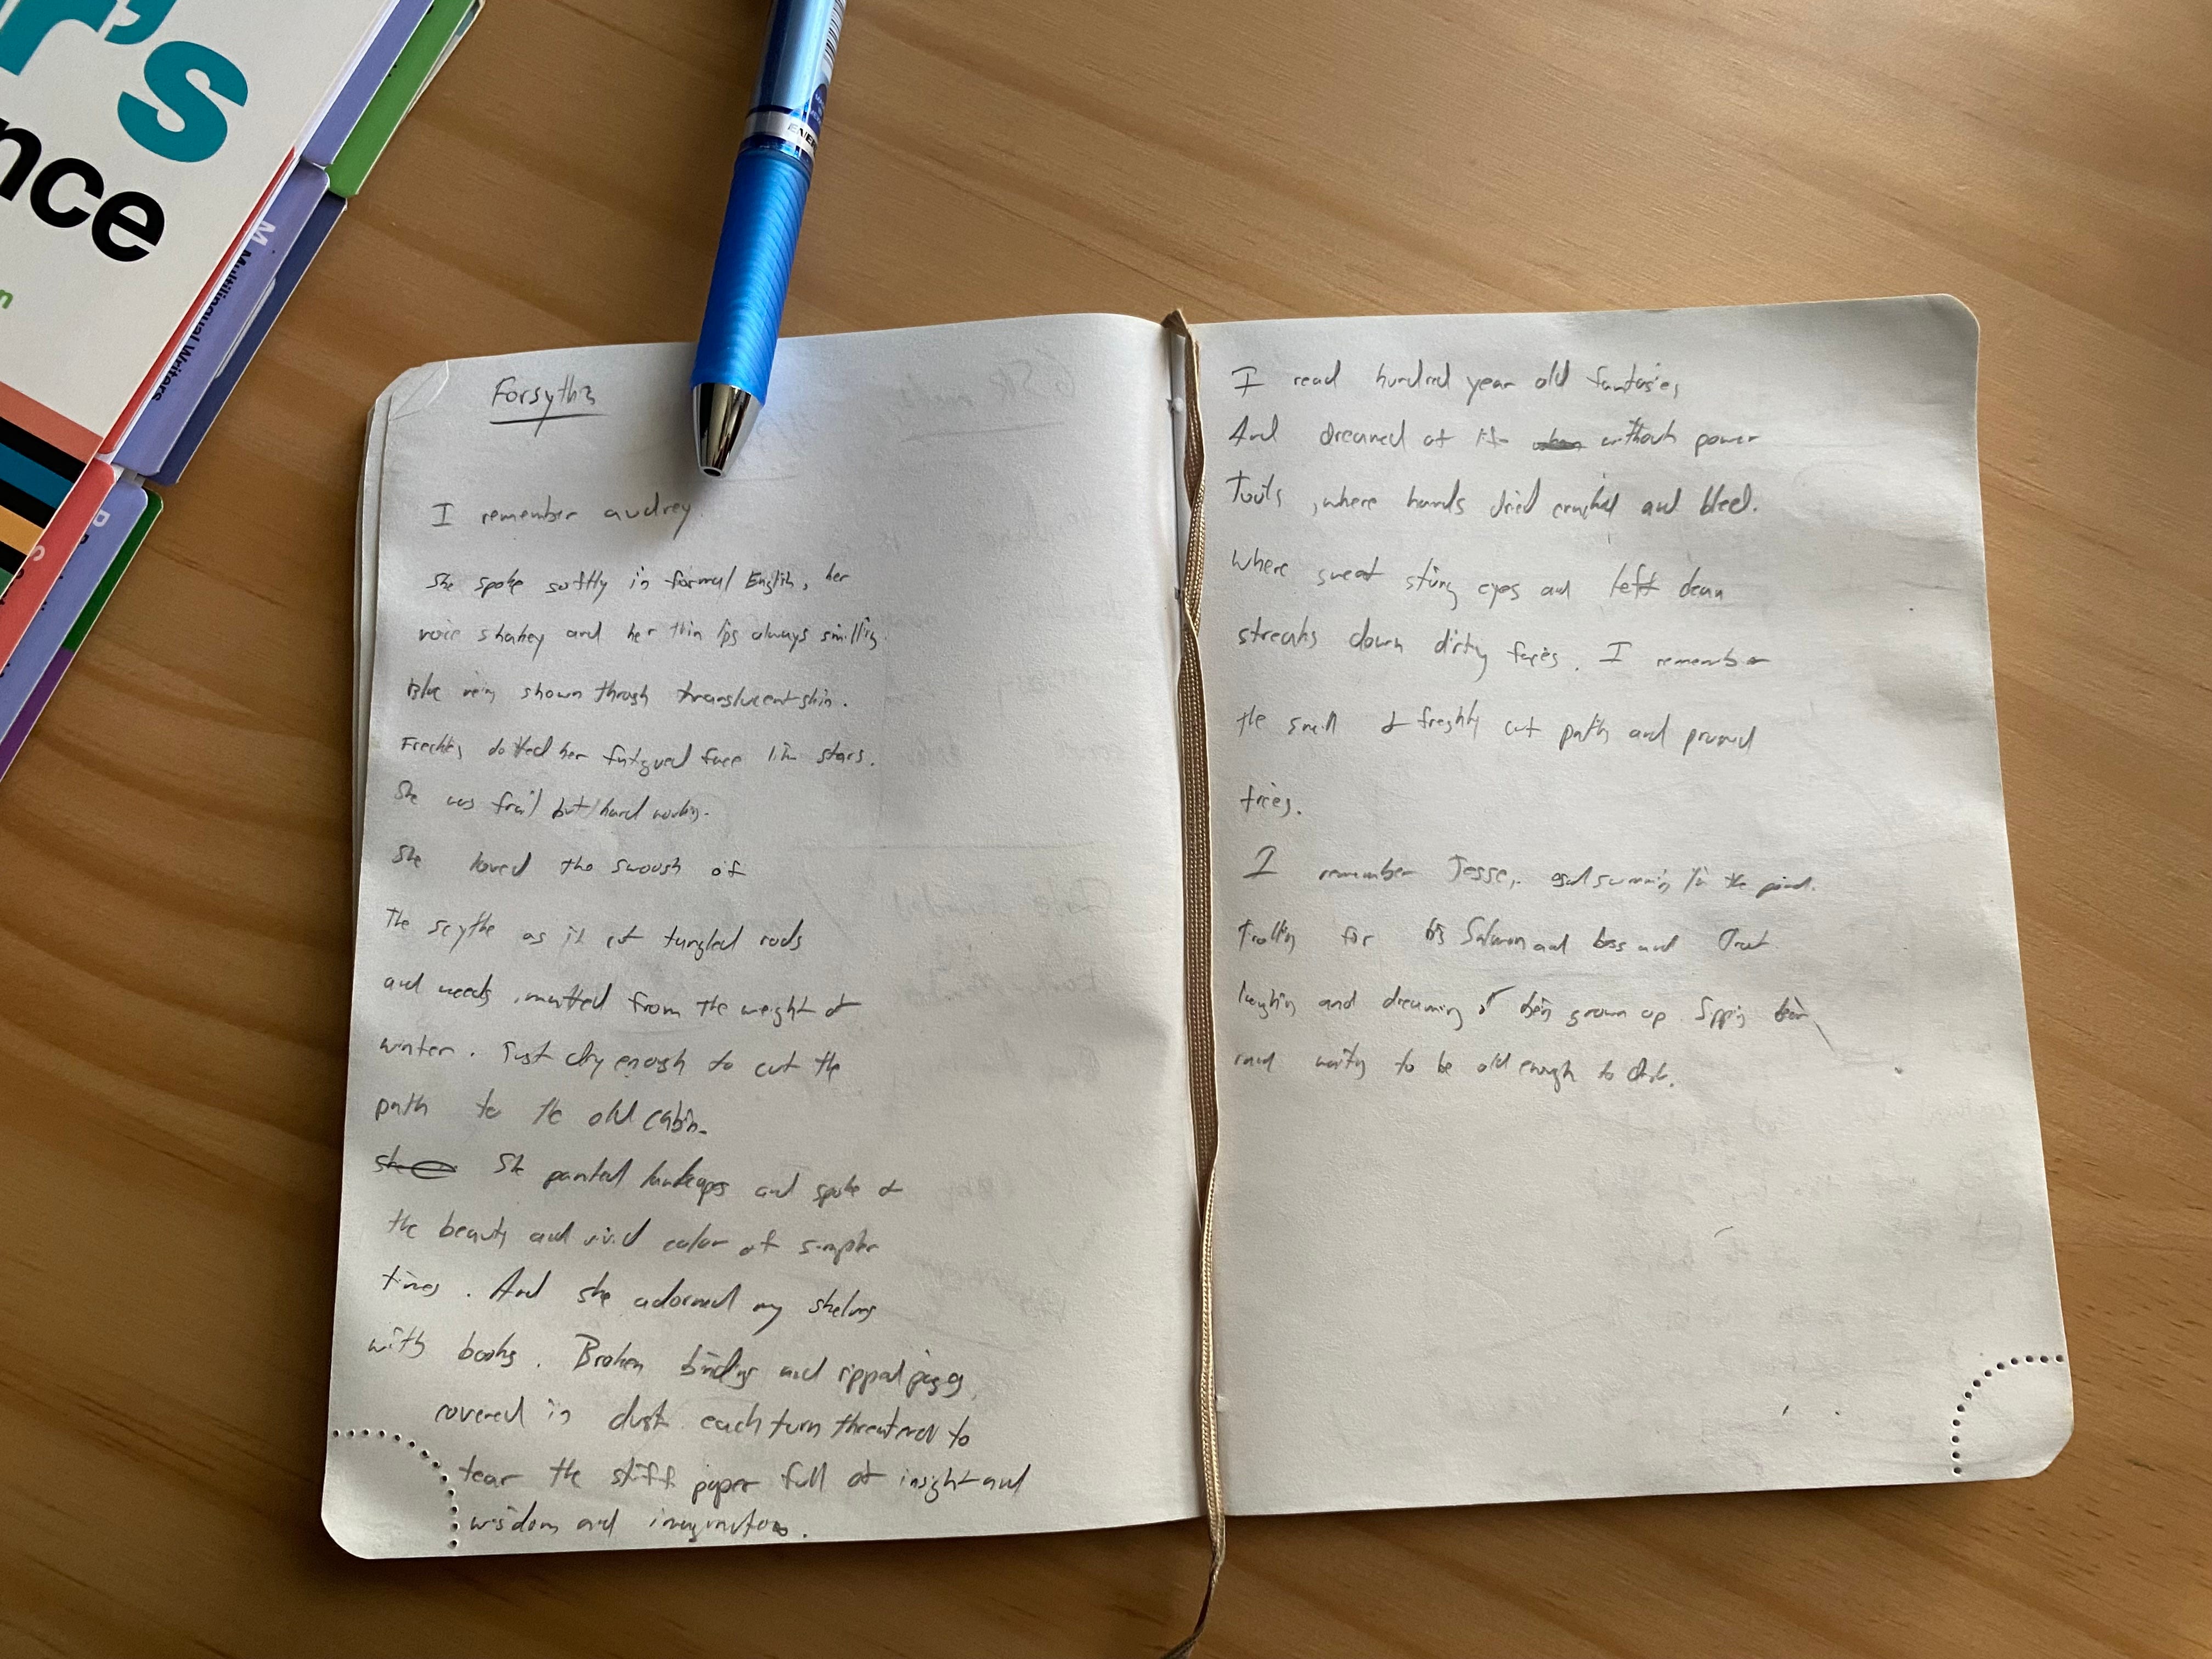 r's
nce
n
M Multilingual Writers
ENER
Forsyths
I remember audrey.
She spoke softly in formal English, her
voice shakey and her thin lips always smilling.
Blue veins shown through translucent skin.
Freckles dotted her fatigued face like stars.
She was frail but hard working.
She loved the swoosh of
The scythe as it cut tangled rods
and weeds, matted from the weight of
winter. Just dry enough to cut the
path to the old cabin.
She She painted landscapes and spoke of
the beauty and vivid color of simpler
times. And she adorned my shelves
with books. Broken bindings and ripped pages,
covered in dust each turn threatened to
tear the stiff paper full of insight and
wisdom and imagination.
I read hundred year old fantasies
And dreamed of life without power
tools, where hands dried cracked and bleed.
Where sweat stung eyes and left clean
streaks down dirty faces. I remember
the smell of freshly cut paths and pruned
trees.
I remember Jesse, and swimming in the pond.
Trolling for big Salmon and bass and trout.
laughing and dreaming of being grown up. Sipping beer,
and waiting to be old enough to drink.